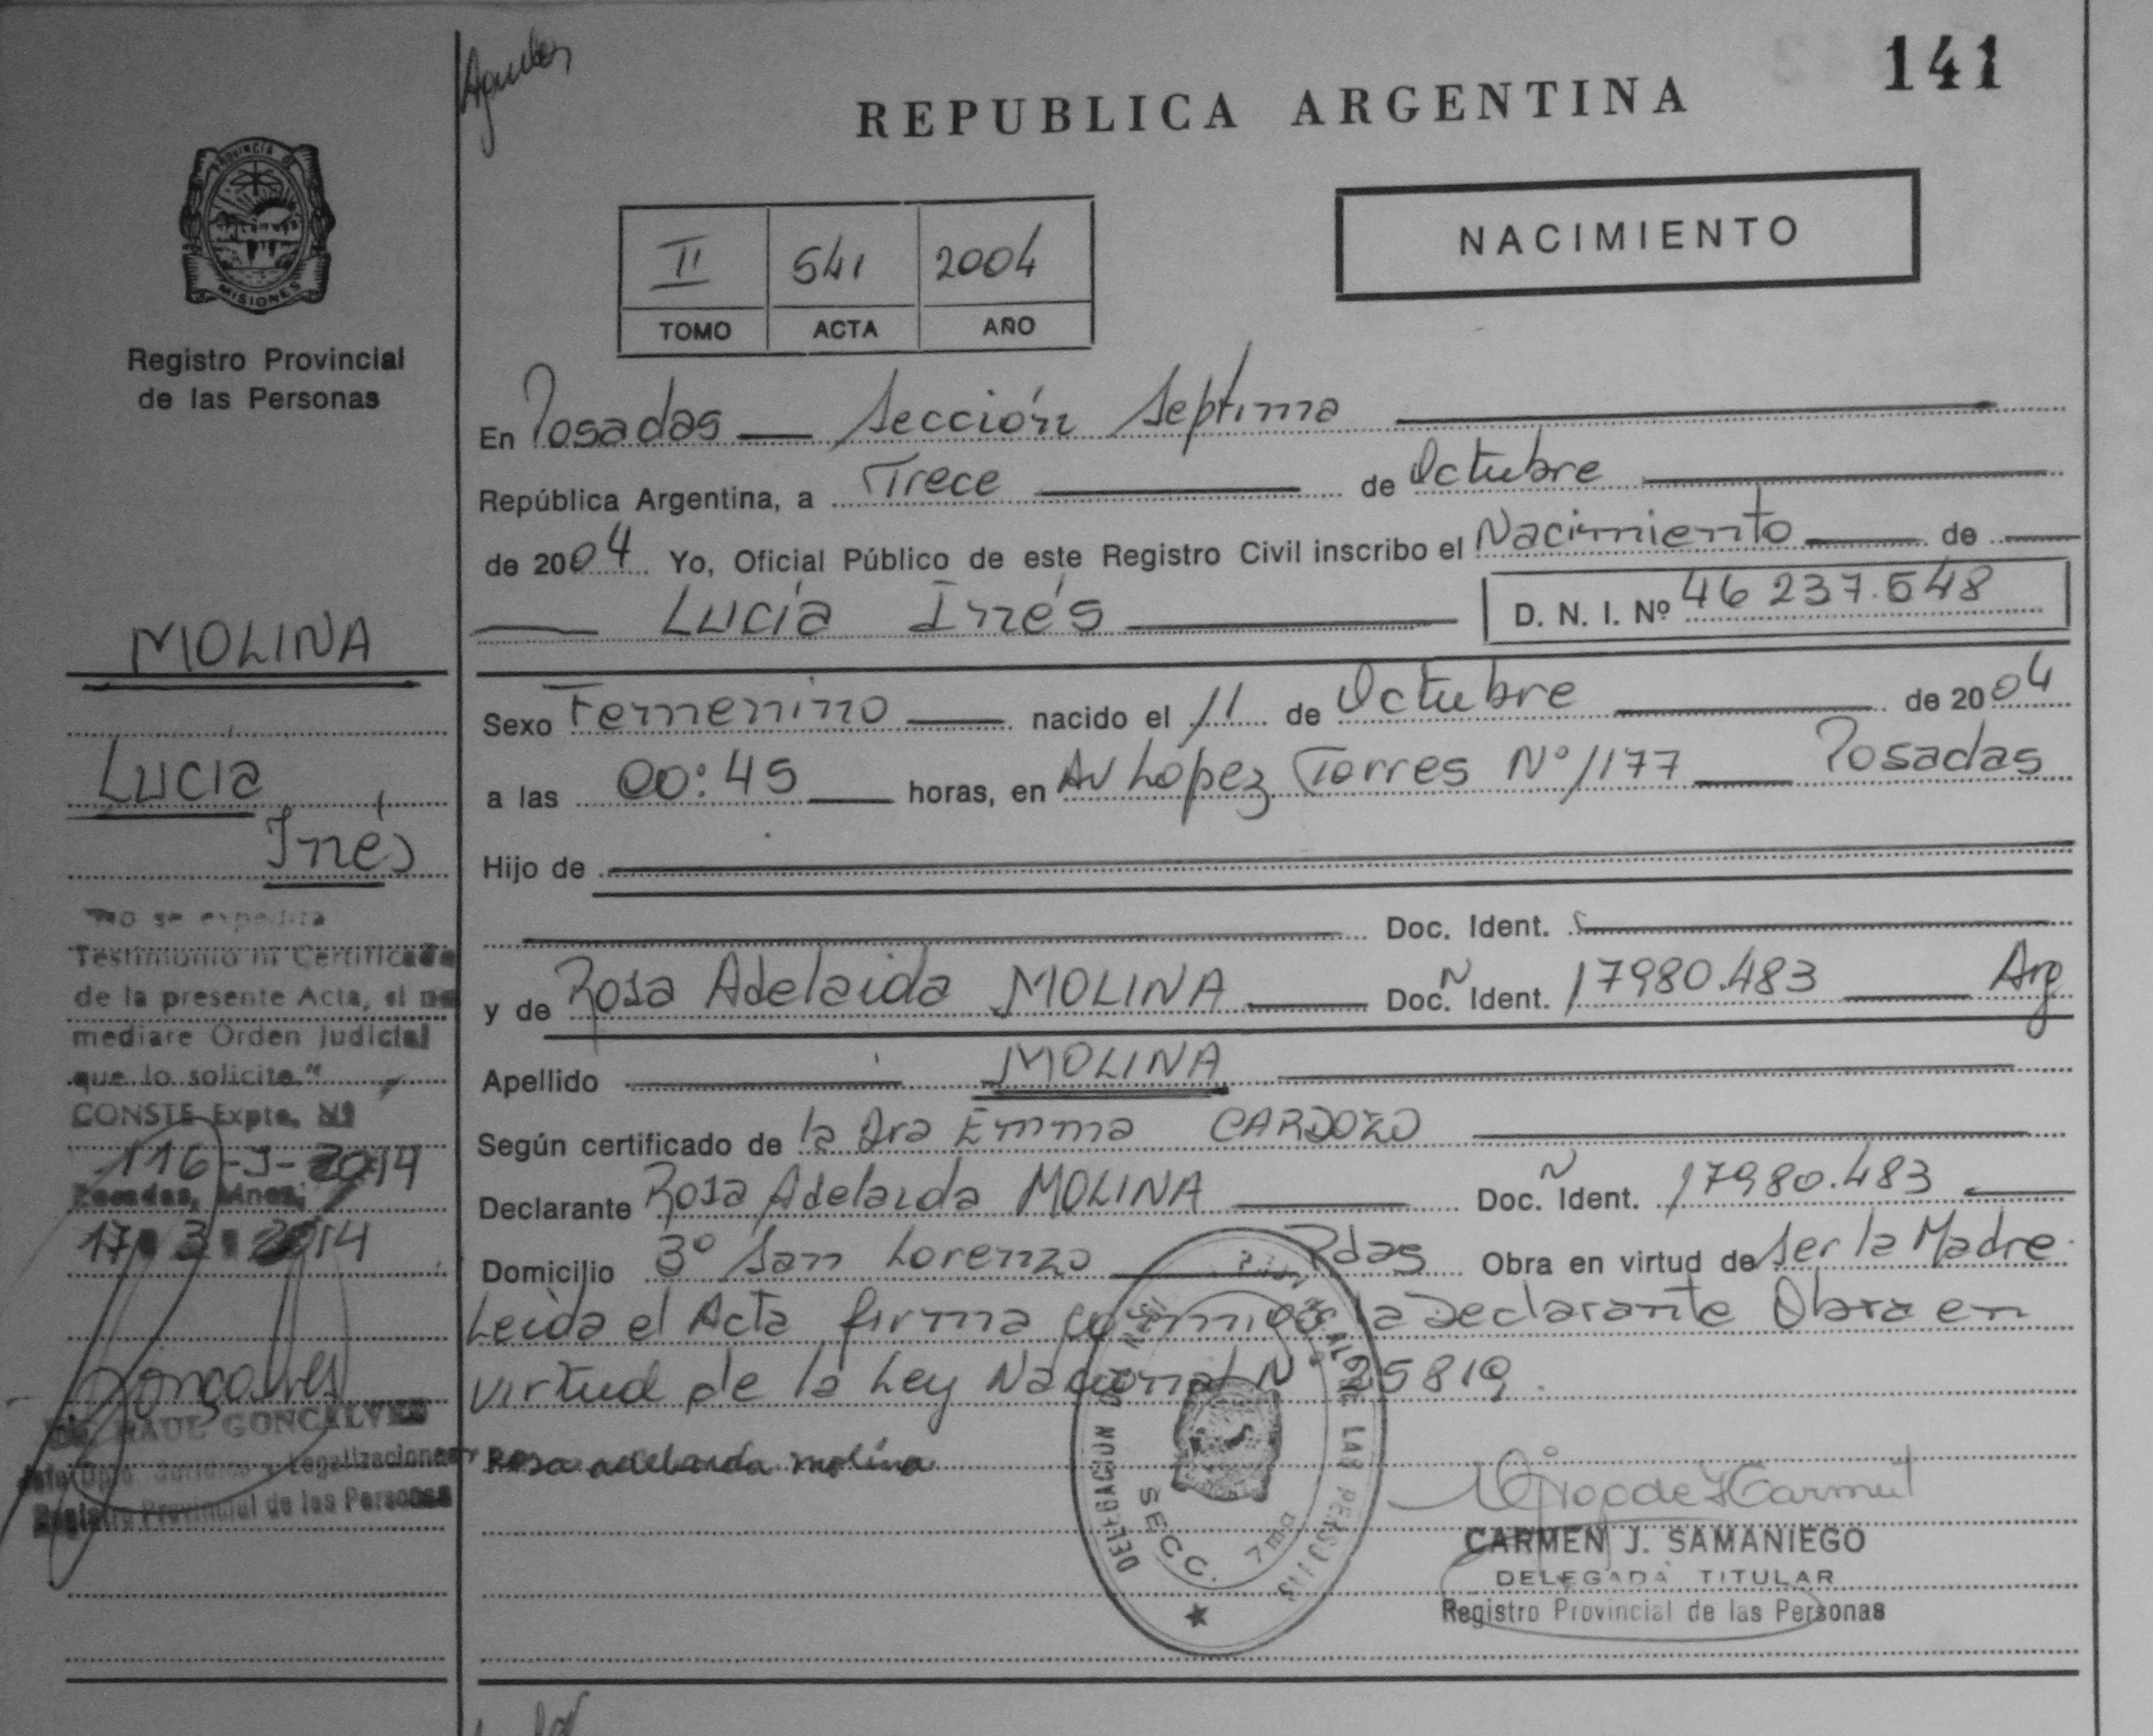 141
REPUBLICA ARGENTINA
NACIMIENTO
II 541 2004
TOMO ACTA AÑO
PROVINCIA DE
MISIONES
Registro Provincial
de las Personas
MOLINA
Lucía
Inés
"No se expedira
Testimonio ni Certificado
de la presente Acta, si no
mediare Orden Judicial
que lo solicite."
CONSTE Expte. Nº
116-J-2014
Posadas, Mnes,
17 3 2014
RAUL GONCALVES
Jefe Dpto. Jurídico y Legalizaciones
Registro Provincial de las Personas
En Posadas — Sección Septima
República Argentina, a Trece de Octubre
de 2004 Yo, Oficial Público de este Registro Civil inscribo el Nacimiento de
Lucía Inés D. N. I. Nº 46 237.548
Sexo Femenino nacido el 11 de Octubre de 2004
a las 00:45 horas, en Av López Torres Nº 1177 Posadas
Hijo de
Doc. Ident.
y de Rosa Adelaida MOLINA Doc. N Ident. 17980.483 Arg
Apellido MOLINA
Según certificado de la Dra Emma CARDOZO
Declarante Rosa Adelaida MOLINA Doc. N Ident. 17980.483
Domicilio 3º San Lorenzo Pdas Obra en virtud de ser la Madre.
Leida el Acta firma conmigo la Declarante Obra en
virtud de la Ley Nacional Nº 25819.
Rosa adelaida molina
DELEGACION LAS PERSONAS
SECC. 7ma
CARMEN J. SAMANIEGO
DELEGADA TITULAR
Registro Provincial de las Personas